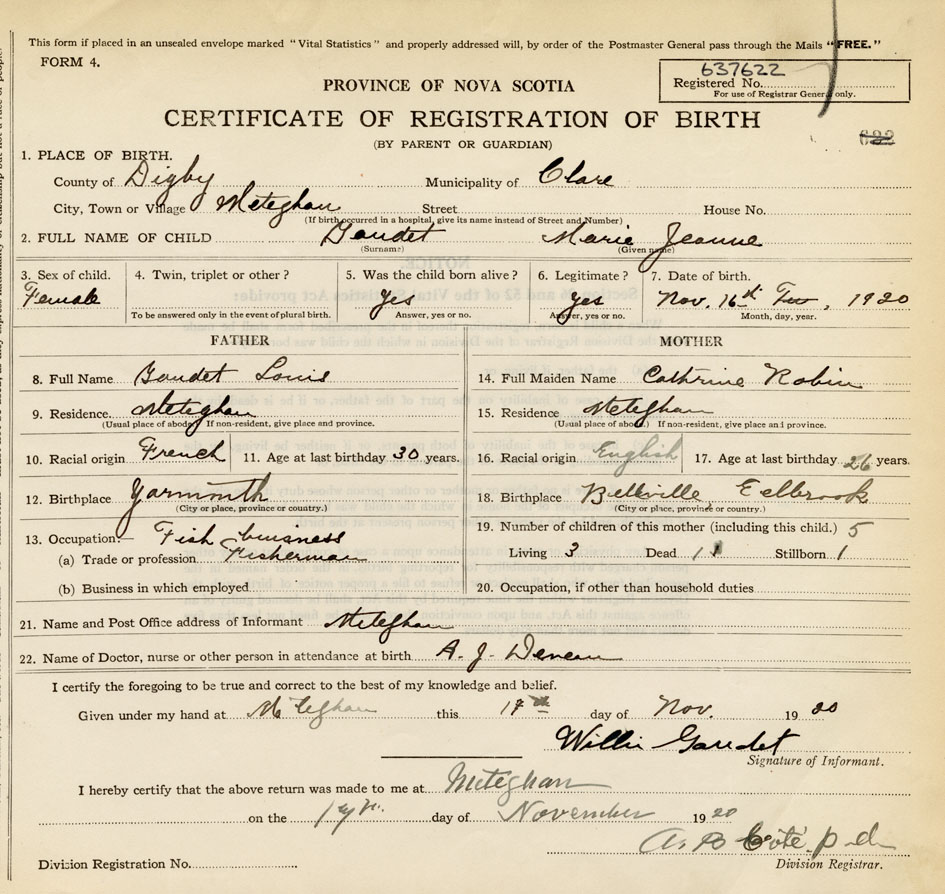 This form if placed in an unsealed envelope marked "Vital Statistics" and properly addressed will, by order of the Postmaster General pass through the Mails "FREE."
FORM 4.
637622
Registered No.
For use of Registrar General only.
PROVINCE OF NOVA SCOTIA
CERTIFICATE OF REGISTRATION OF BIRTH
(BY PARENT OR GUARDIAN)
622
1. PLACE OF BIRTH.
County of Digby Municipality of Clare
City, Town or Village Meteghan Street House No.
(If birth occurred in a hospital, give its name instead of Street and Number)
2. FULL NAME OF CHILD Gaudet Marie Jeanne
(Surname) (Given name)
3. Sex of child. 4. Twin, triplet or other? 5. Was the child born alive? 6. Legitimate? 7. Date of birth.
Female Yes Yes Nov. 16th 1920
To be answered only in the event of plural birth. Answer, yes or no. Answer, yes or no. Month, day, year.
FATHER MOTHER
8. Full Name Gaudet Louis 14. Full Maiden Name Cathrine Robin
9. Residence. Meteghan 15. Residence Meteghan
(Usual place of abode.) If non-resident, give place and province. (Usual place of abode.) If non-resident, give place and province.
10. Racial origin French 11. Age at last birthday 30 years. 16. Racial origin English 17. Age at last birthday 26 years.
12. Birthplace Yarmouth 18. Birthplace Belleville Eelbrook
(City or place, province or country.) (City or place, province or country.)
13. Occupation:— Fish business 19. Number of children of this mother (including this child.) 5
(a) Trade or profession Fisherman Living 3 Dead 1 Stillborn 1
(b) Business in which employed 20. Occupation, if other than household duties
21. Name and Post Office address of Informant Meteghan
22. Name of Doctor, nurse or other person in attendance at birth A. J.
I certify the foregoing to be true and correct to the best of my knowledge and belief.
Given under my hand at Meteghan this day of Nov. 1920
Willie Gaudet
Signature of Informant.
I hereby certify that the above return was made to me at Meteghan
on the day of November 1920
Division Registration No. Division Registrar.